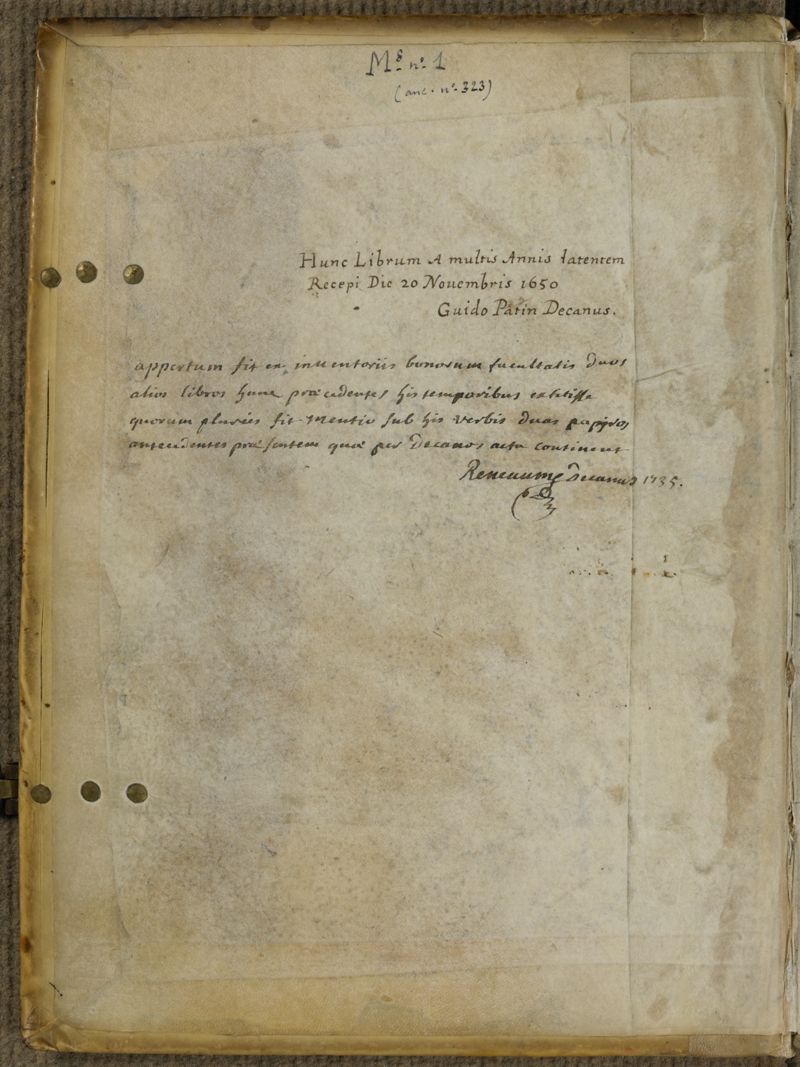 Ms. n°. 1
(anc. n°. 323)
Hunc Librum A multis Annis latentem
Recepi Die 20 Nouembris 1650
Guido Patin Decanus.
appertum fit ex inuentoriis bonorum facultatis duos
alios libros hunc præcedentes his temporibus extitisse
quorum pluries fit mentio sub his verbis duos
antecedentes præsentem quæ per Decanos acta continent
Decanus 1735.